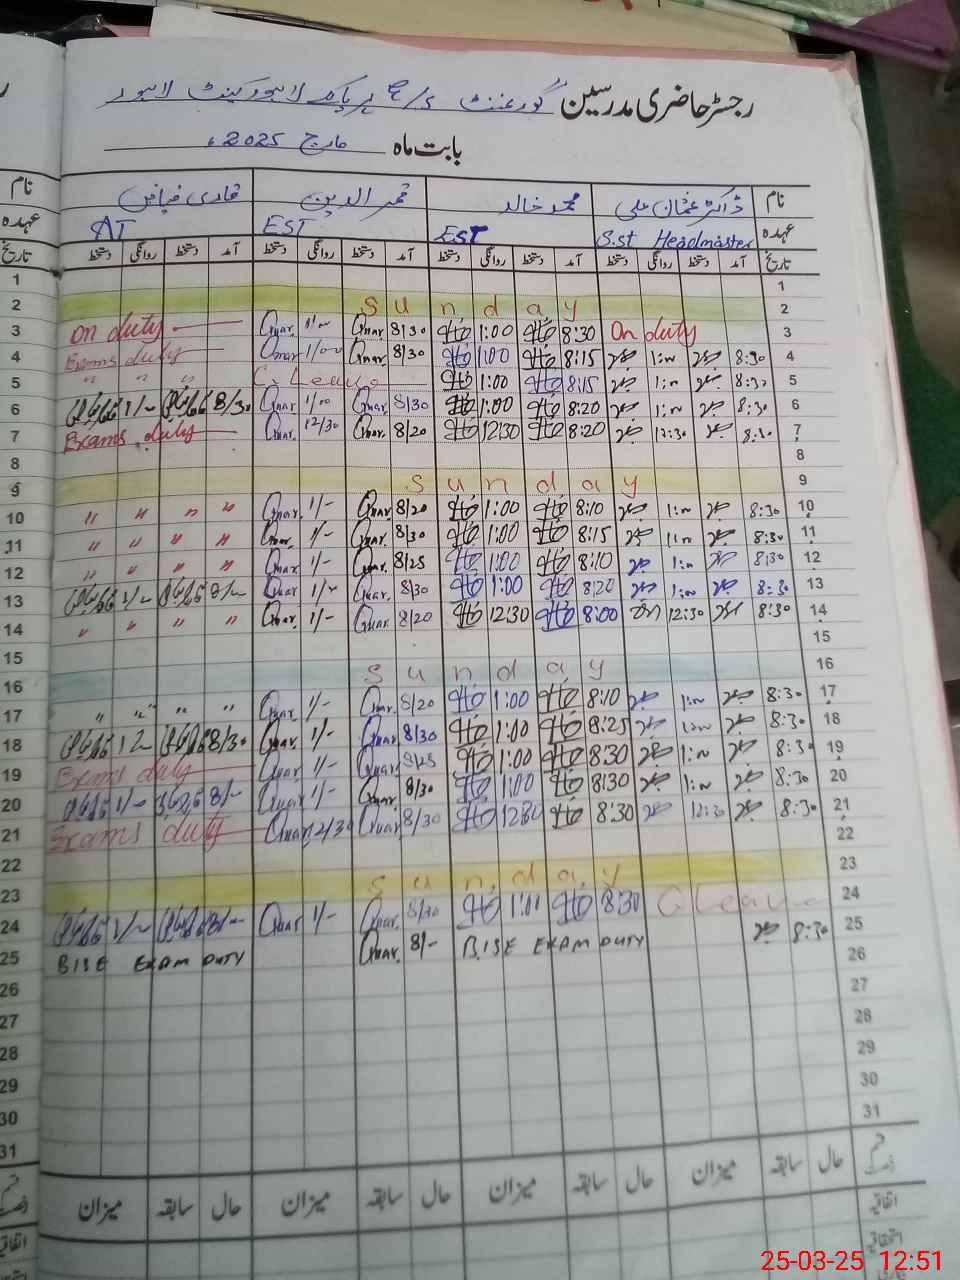 رجسٹر حاضری مدرسین گورنمنٹ لاہور کینٹ لاہور
بابت ماہ مارچ 2025ء
نام ڈاکٹر عثمان علی محمد خالد قمر الدین قاری فیاض نام
عہدہ S.st Headmaster EST EST AT عہدہ
تاریخ آمد دستخط روانگی دستخط آمد دستخط روانگی دستخط آمد دستخط روانگی دستخط آمد دستخط روانگی دستخط تاریخ
1 1
2 Sunday 2
3 On duty Qmar. 1/- Qmar 8/30 1:00 8:30 On duty 3
4 Exams duty Qmar 1/00 Qmar. 8/30 1:00 8:15 1:00 8:30 4
5 " " " C. Leave 1:00 8:15 1:00 8:30 5
6 1/- 8/30 Qmar. 1/00 Qmar. 8/30 1:00 8:20 1:00 8:30 6
7 Exams duty Qmar. 12/30 Qmar. 8/20 12:30 8:20 12:30 8:30 7
8 8
9 Sunday 9
10 " " " " Qmar. 1/- Qmar. 8/20 1:00 8:10 1:00 8:30 10
11 " " " " Qmar. 1/- Qmar. 8/30 1:00 8:15 1:00 8:30 11
12 " " " " Qmar. 1/- Qmar. 8/25 1:00 8:10 1:00 8:30 12
13 1/- 8/- Qmar. 1/- Qmar. 8/30 1:00 8:20 1:00 8:30 13
14 " " " " Qmar. 1/- Qmar. 8/20 12:30 8:00 12:30 8:30 14
15 15
16 Sunday 16
17 " " " " Qmar. 1/- Qmar. 8/20 1:00 8:10 1:00 8:30 17
18 8/30 Qmar. 1/- Qmar. 8/30 1:00 8:25 1:00 8:30 18
19 Exams duty Qmar 1/- Qmar. 8/25 1:00 8:30 1:00 8:30 19
20 1/- 8/- Qmar 1/- Qmar. 8/30 1:00 8:30 1:00 8:30 20
21 Exams duty Qmar 12/30 Qmar. 8/30 12:30 8:30 12:30 8:30 21
22 22
23 Sunday 23
24 1/- 8/- Qmar 1/- Qmar. 8/30 1:00 8:30 C Leave 24
25 BISE EXAM DUTY Qmar. 8/- B.ISE EXAM DUTY 8:30 25
26 26
27 27
28 28
29 29
30 30
31 31
حال سابقہ میزان حال سابقہ میزان حال سابقہ میزان حال سابقہ میزان
اتفاقیہ
25-03-25 12:51